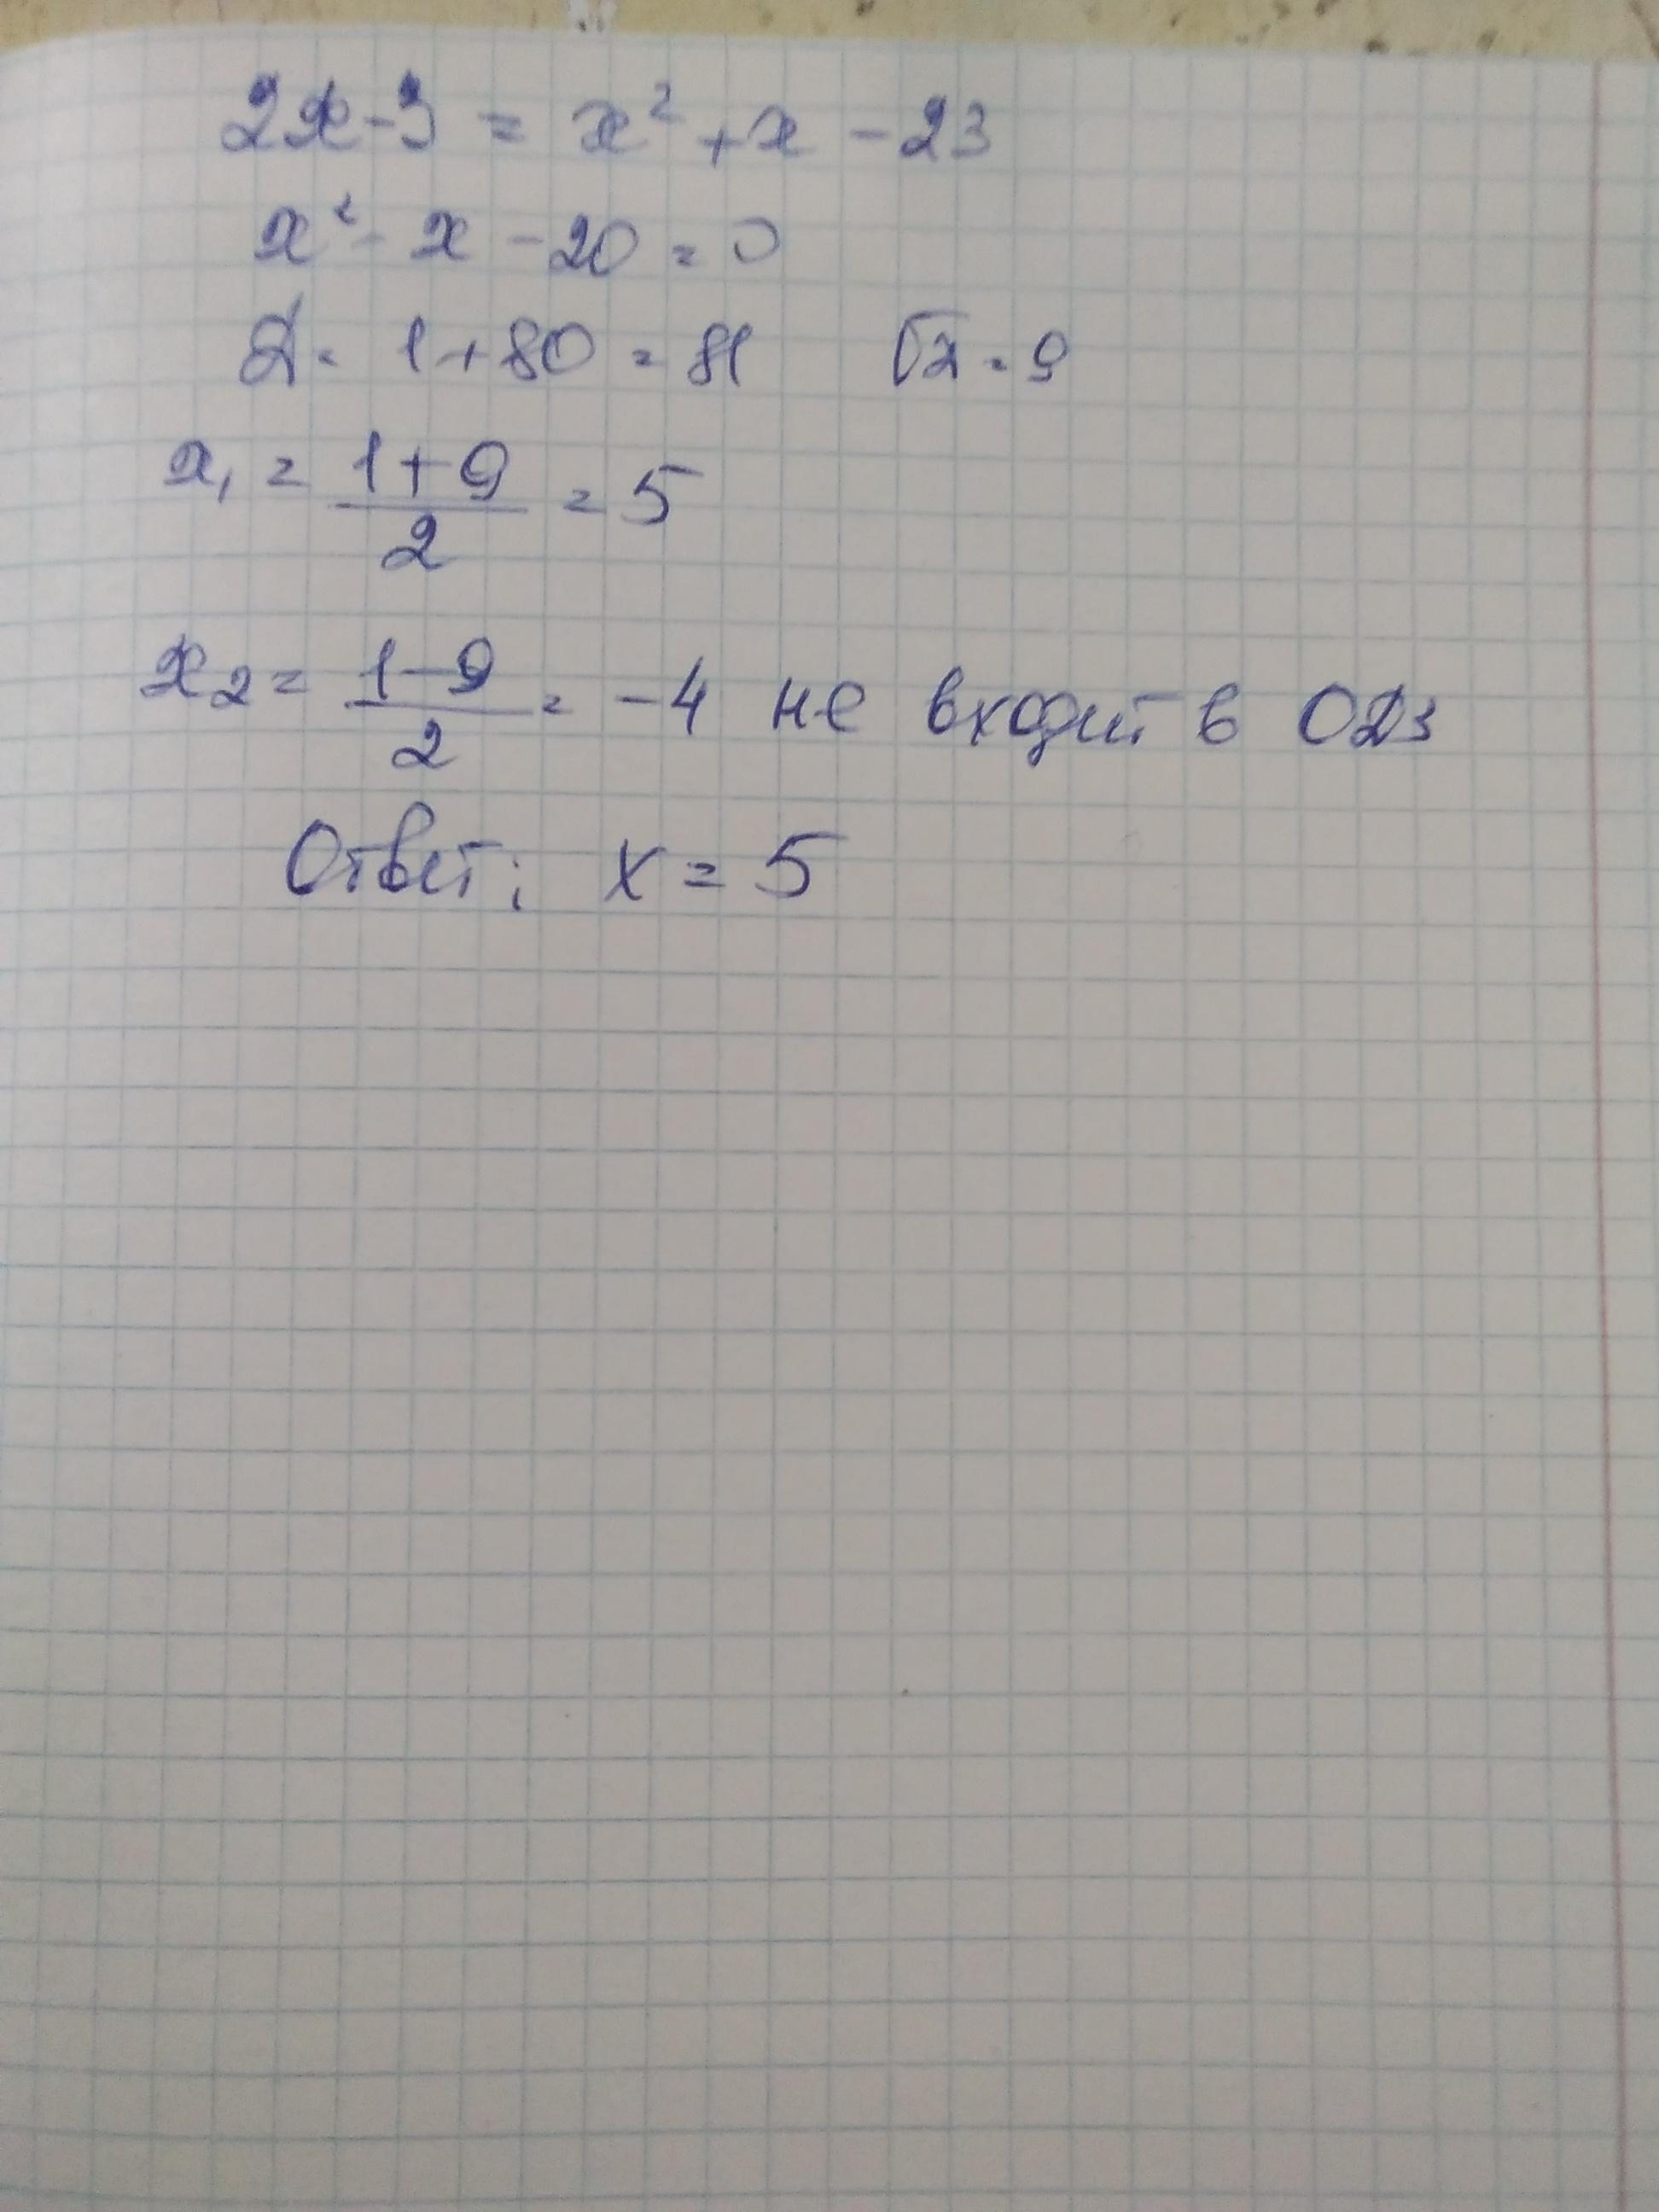 2x-3 = x² + x - 23
x² - x - 20 = 0
D = 1+80 = 81 √D = 9
x₁ = (1+9)/2 = 5
x₂ = (1-9)/2 = -4 не входит в ОДЗ
Ответ: x = 5